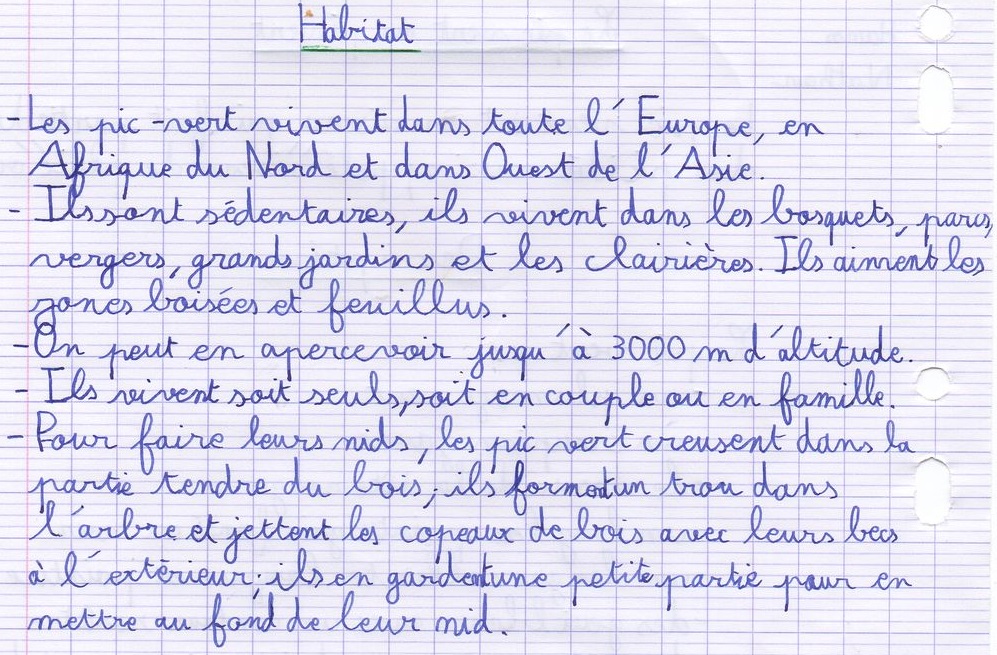 Habitat
- Les pic-vert vivent dans toute l'Europe, en
Afrique du Nord et dans Ouest de l'Asie.
- Ils sont sédentaires, ils vivent dans les bosquets, parcs,
vergers, grands jardins et les clairières. Ils aiment les
zones boisées et feuillus.
- On peut en apercevoir jusqu'à 3000 m d'altitude.
- Ils vivent soit seuls, soit en couple ou en famille.
- Pour faire leurs nids, les pic vert creusent dans la
partie tendre du bois; ils forment un trou dans
l'arbre et jettent les copeaux de bois avec leurs becs
à l'extérieur; ils en gardent une petite partie pour en
mettre au fond de leur nid.